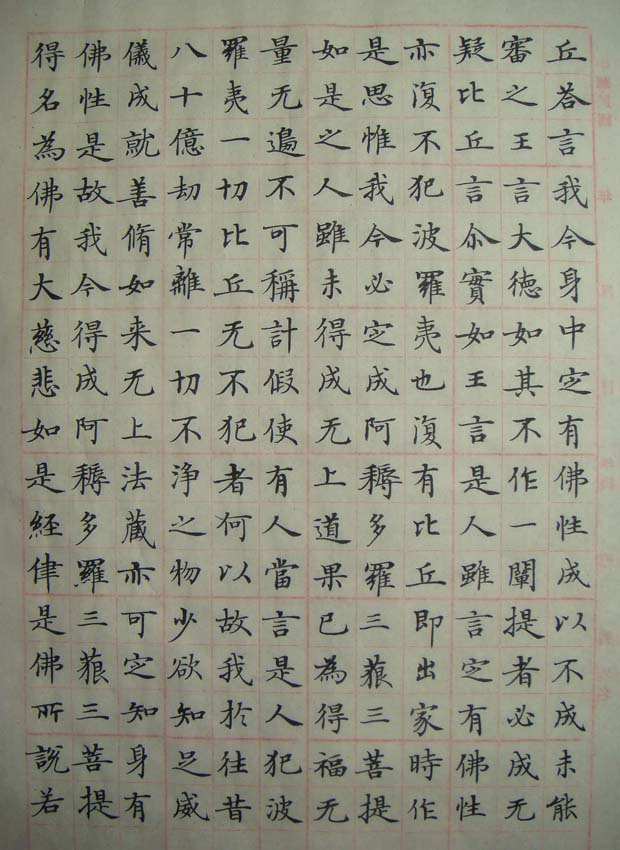 丘荅言我今身中㝎有佛性成以不成未能
審之王言大德如其不作一闡提者必成无
疑比丘言尒實如王言是人雖言㝎有佛性
亦復不犯波羅夷也復有比丘即出家時作
是思惟我今必㝎成阿耨多羅三藐三菩提
如是之人雖未得成无上道果已為得福无
量无邊不可稱計假使有人當言是人犯波
羅夷一切比丘无不犯者何以故我於往昔
八十億劫常離一切不浄之物少欲知足威
儀成就善脩如来无上法蔵亦可㝎知身有
佛性是故我今得成阿耨多羅三藐三菩提
得名為佛有大慈悲如是經律是佛所說若